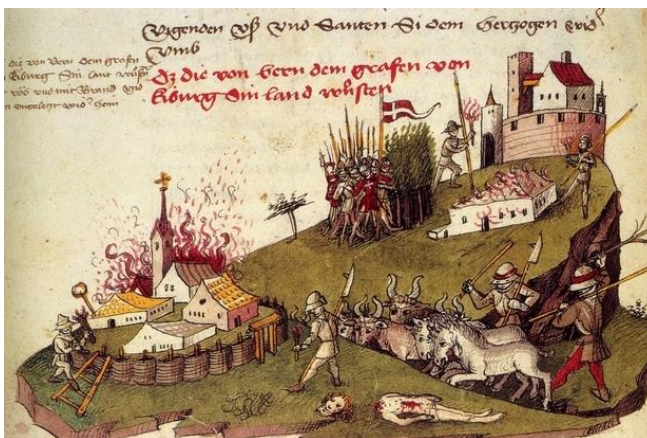 vigenden vß vnd santen si dem hertzogen
vmb
Dz die von bern dem grafen von
kiburg sin land wůsten
die von bern dem grafen
kiburg sin lant
vnd mit brand vnd